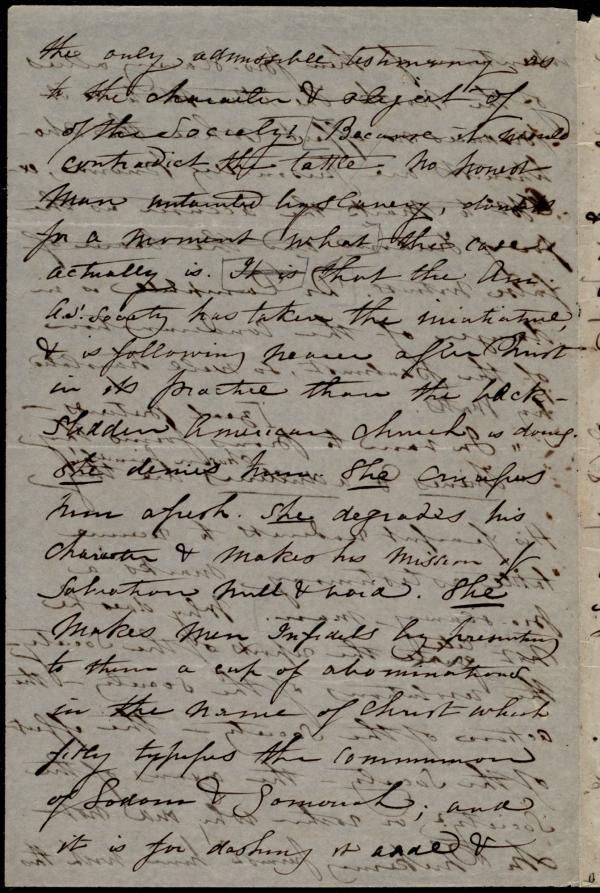 the only admissible testimony as
to the character & object of
of the Society! Because it would
contradict the tattle. No honest
man untainted by slavery, doubts
for a moment what the case
actually is. It is that the Am.
A.S. Society has taken the initiative,
& is following nearer after Christ
in its practice than the back-
slidden American church is doing.
She denies him. She crucifies
him afresh. She degrades his
character & makes his mission of
Salvation null & void. She
makes men Infidels by presenting
to them a cup of abominations
in the name of Christ which
fitly typifies the communion
of Sodom & Gomorrah; and
it is for dashing it &